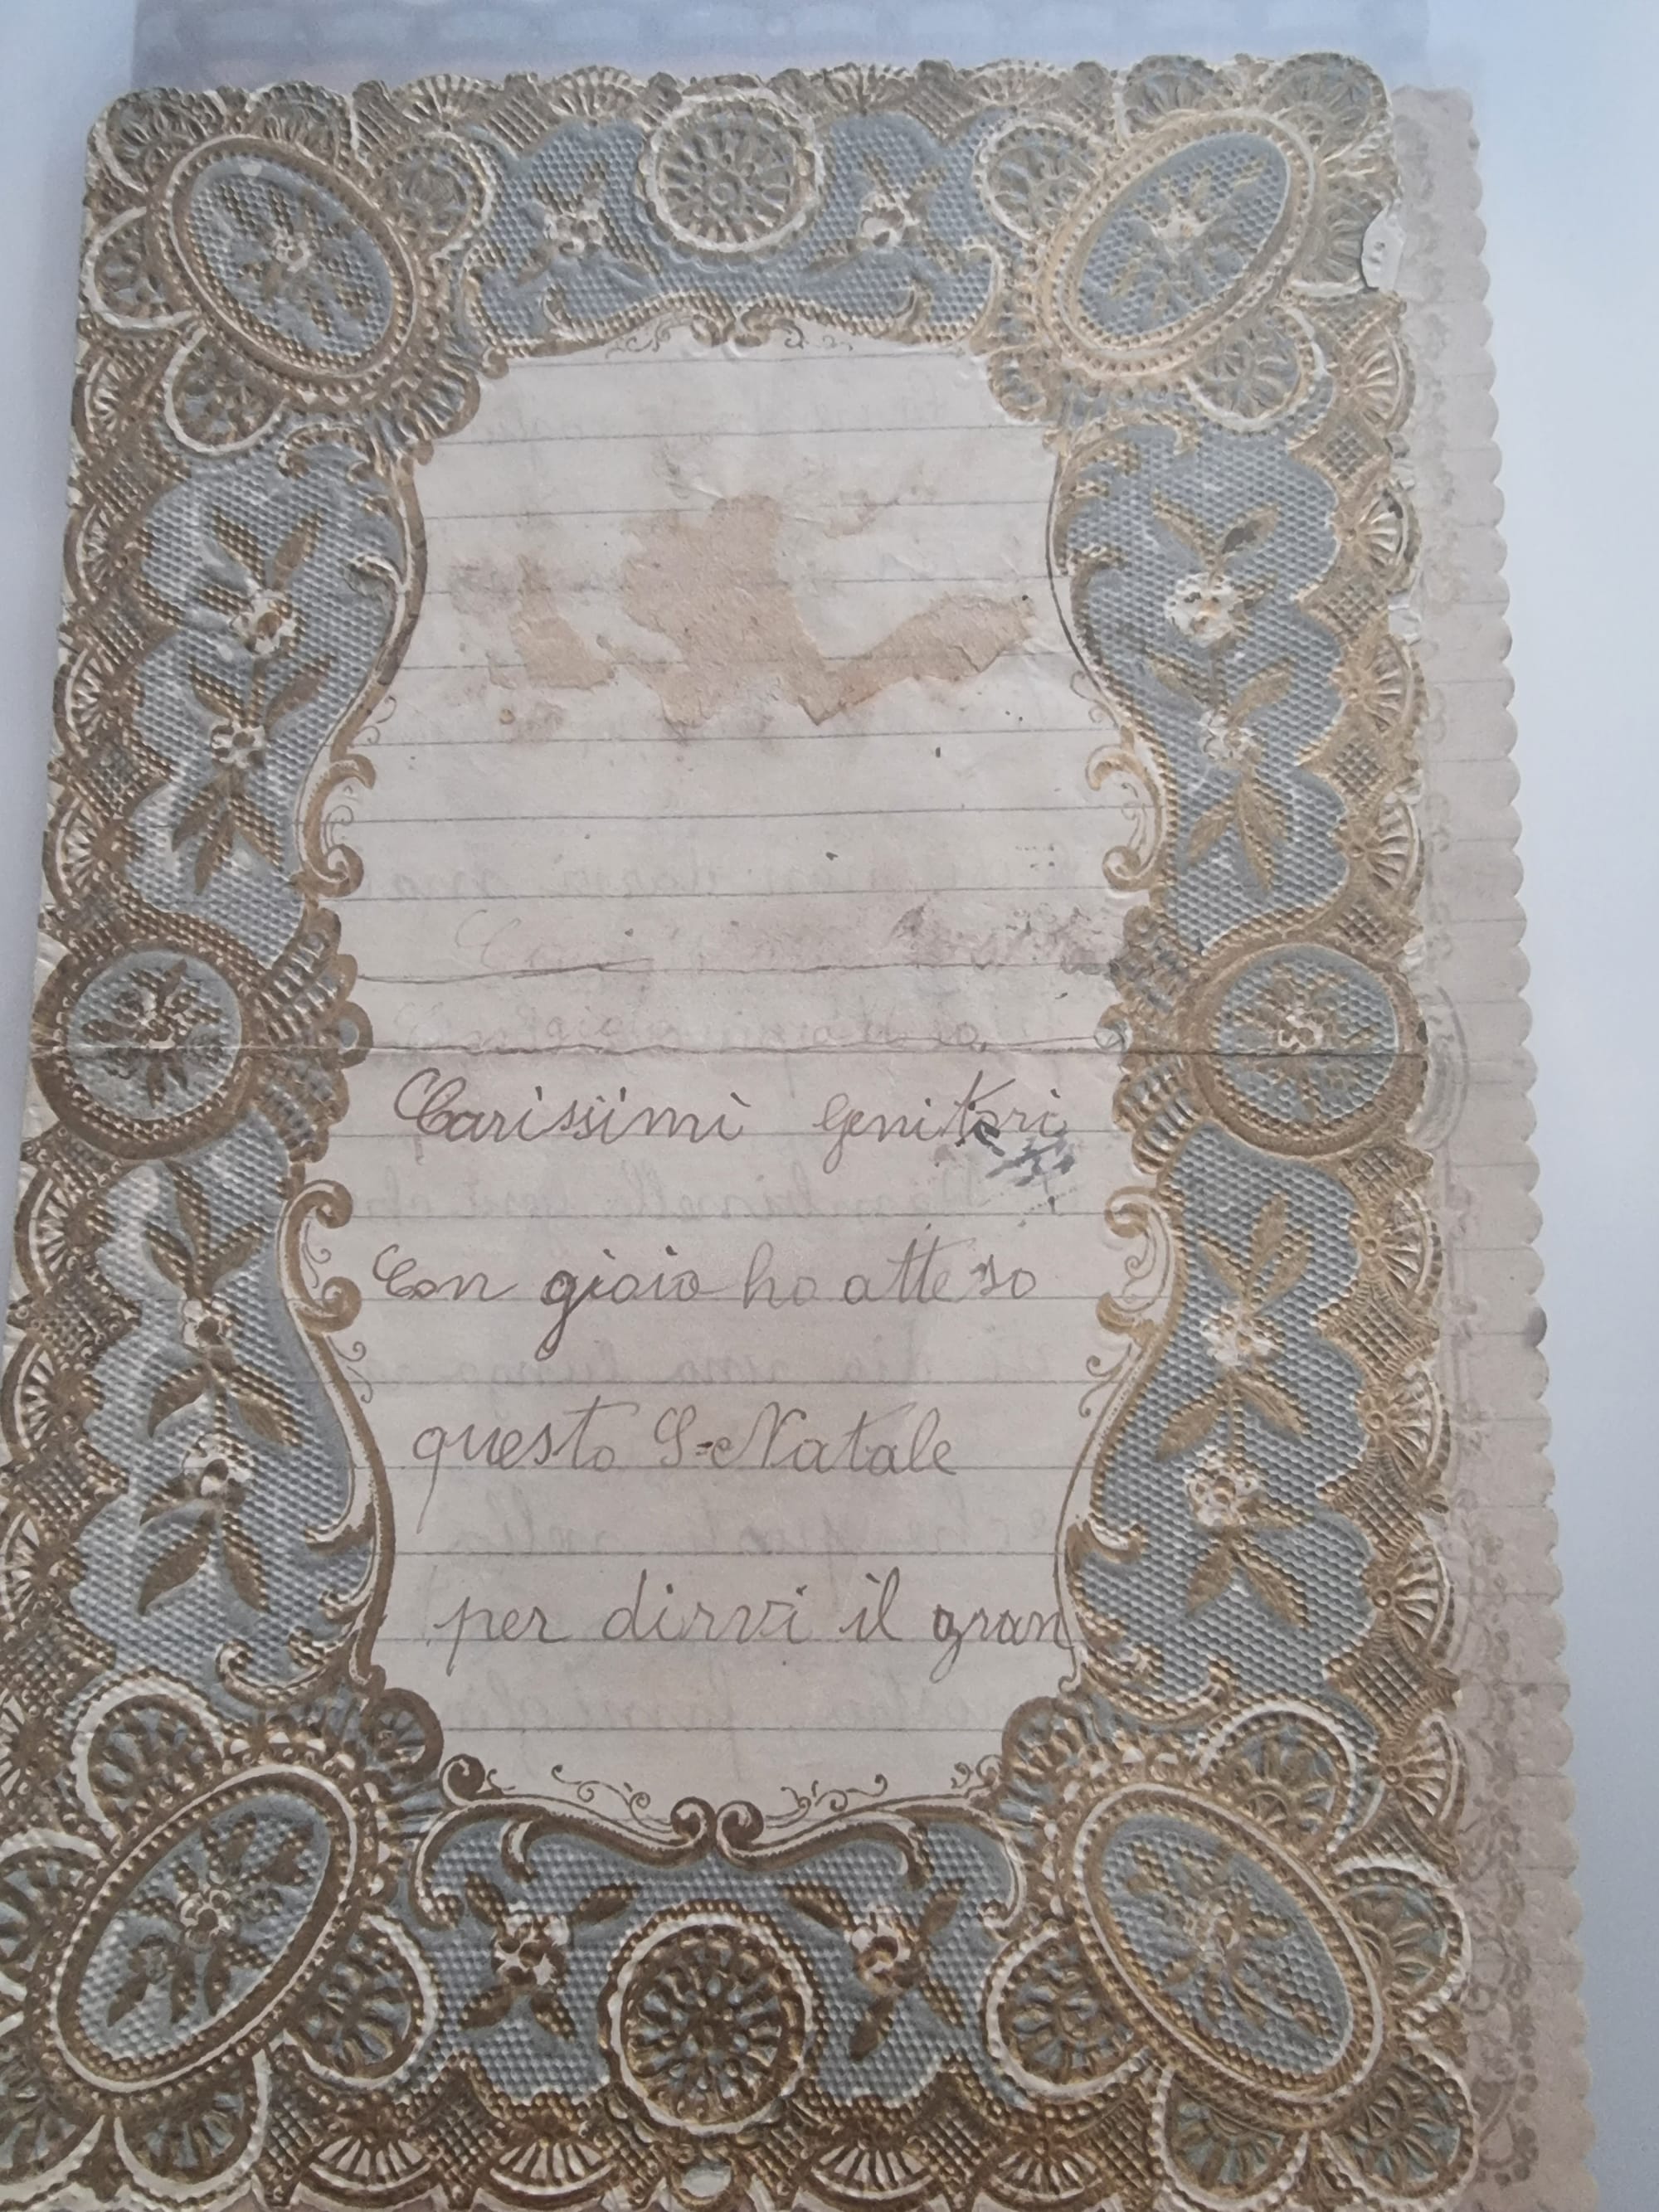 Carissimi genitori
Con gioia ho atteso
questo S=Natale
per dirvi il gran